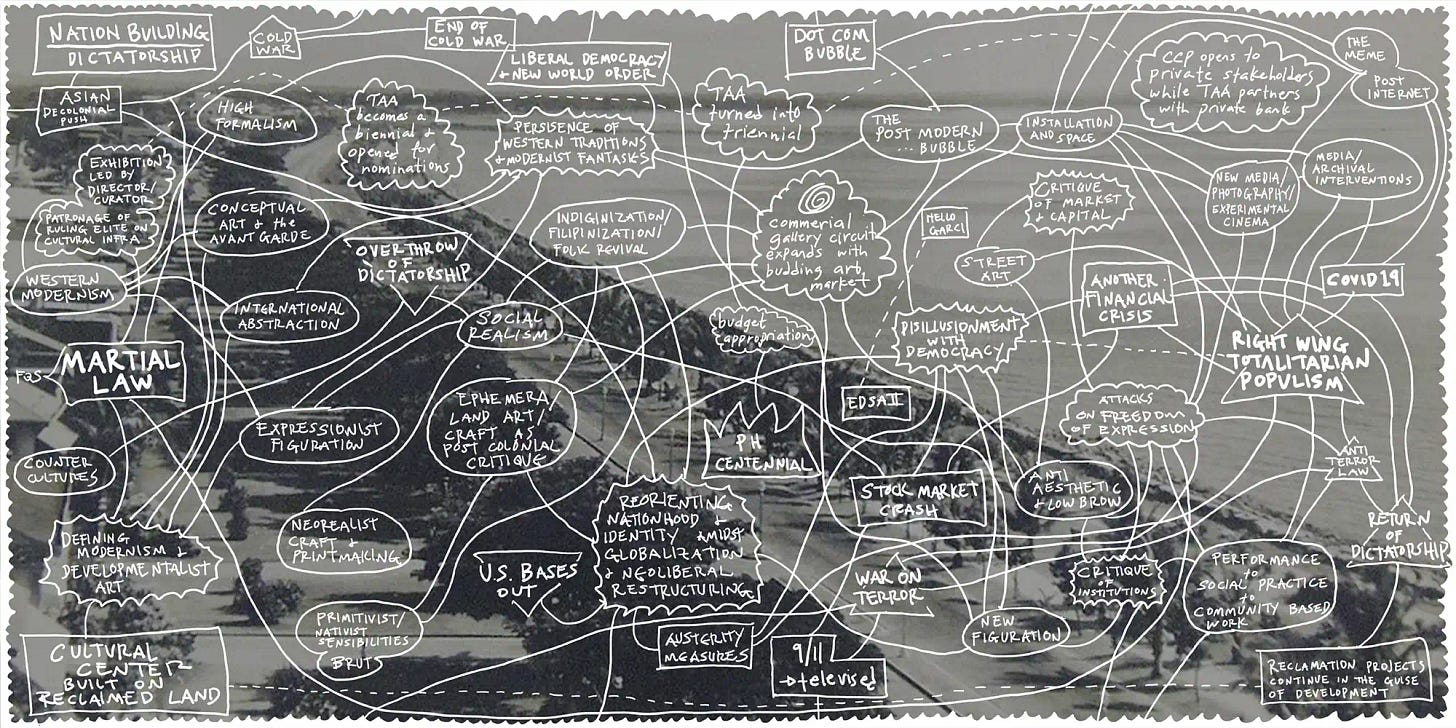 NATION BUILDING
DICTATORSHIP
COLD
WAR
END OF
COLD WAR
LIBERAL DEMOCRACY
& NEW WORLD ORDER
DOT COM
BUBBLE
CCP opens to
private stakeholders
while TAA partners
with private bank
THE
MEME
POST
INTERNET
ASIAN
DECOLONIAL
PUSH
HIGH
FORMALISM
TAA
becomes a
biennial &
opened for
nominations
PERSISENCE OF
WESTERN TRADITIONS
& MODERNIST FANTASIES
TAA
turned into
triennial
THE
POST MODERN
... BUBBLE
INSTALLATION
AND SPACE
EXHIBITION
LED BY
DIRECTOR/
CURATOR
PATRONAGE OF
RULING ELITE ON
CULTURAL INFRA
CONCEPTUAL
ART & the
AVANT GARDE
OVERTHROW
OF
DICTATORSHIP
INDIGINIZATION/
FILIPINIZATION/
FOLK REVIVAL
commerial
gallery circuit
expands with
budding art
market
HELLO
GARCI
CRITIQUE
OF MARKET
& CAPITAL
NEW MEDIA/
PHOTOGRAPHY/
EXPERIMENTAL
CINEMA
MEDIA/
ARCHIVAL
INTERVENTIONS
WESTERN
MODERNISM
INTERNATIONAL
ABSTRACTION
SOCIAL
REALISM
STREET
ART
ANOTHER
FINANCIAL
CRISIS
COVID 19
MARTIAL
LAW
FQS
budget
appropriation
DISILLUSIONMENT
WITH
DEMOCRACY
RIGHT WING
TOTALITARIAN
POPULISM
EXPRESSIONIST
FIGURATION
EPHEMERA/
LAND ART/
CRAFT AS
POST COLONIAL
CRITIQUE
PH
CENTENNIAL
EDSA II
ATTACKS
ON FREEDOM
OF EXPRESSION
COUNTER
CULTURES
STOCK MARKET
CRASH
ANTI
AESTHETIC
& LOW BROW
ANTI
TERROR
LAW
DEFINING
MODERNISM &
DEVELOPMENTALIST
ART
NEOREALIST
CRAFT &
PRINTMAKING
U.S. BASES
OUT
REORIENTING
NATIONHOOD &
IDENTITY AMIDST
GLOBALIZATION
& NEOLIBERAL
RESTRUCTURING
WAR ON
TERROR
CRITIQUE
OF
INSTITUTIONS
PERFORMANCE
to
SOCIAL PRACTICE
to
COMMUNITY BASED
WORK
RETURN
OF
DICTATORSHIP
PRIMITIVIST/
NATIVIST
SENSIBILITIES
BRUT
AUSTERITY
MEASURES
9/11
→ televised
NEW
FIGURATION
CULTURAL
CENTER
BUILT ON
RECLAIMED LAND
RECLAMATION PROJECTS
CONTINUE IN THE GUISE
OF DEVELOPMENT